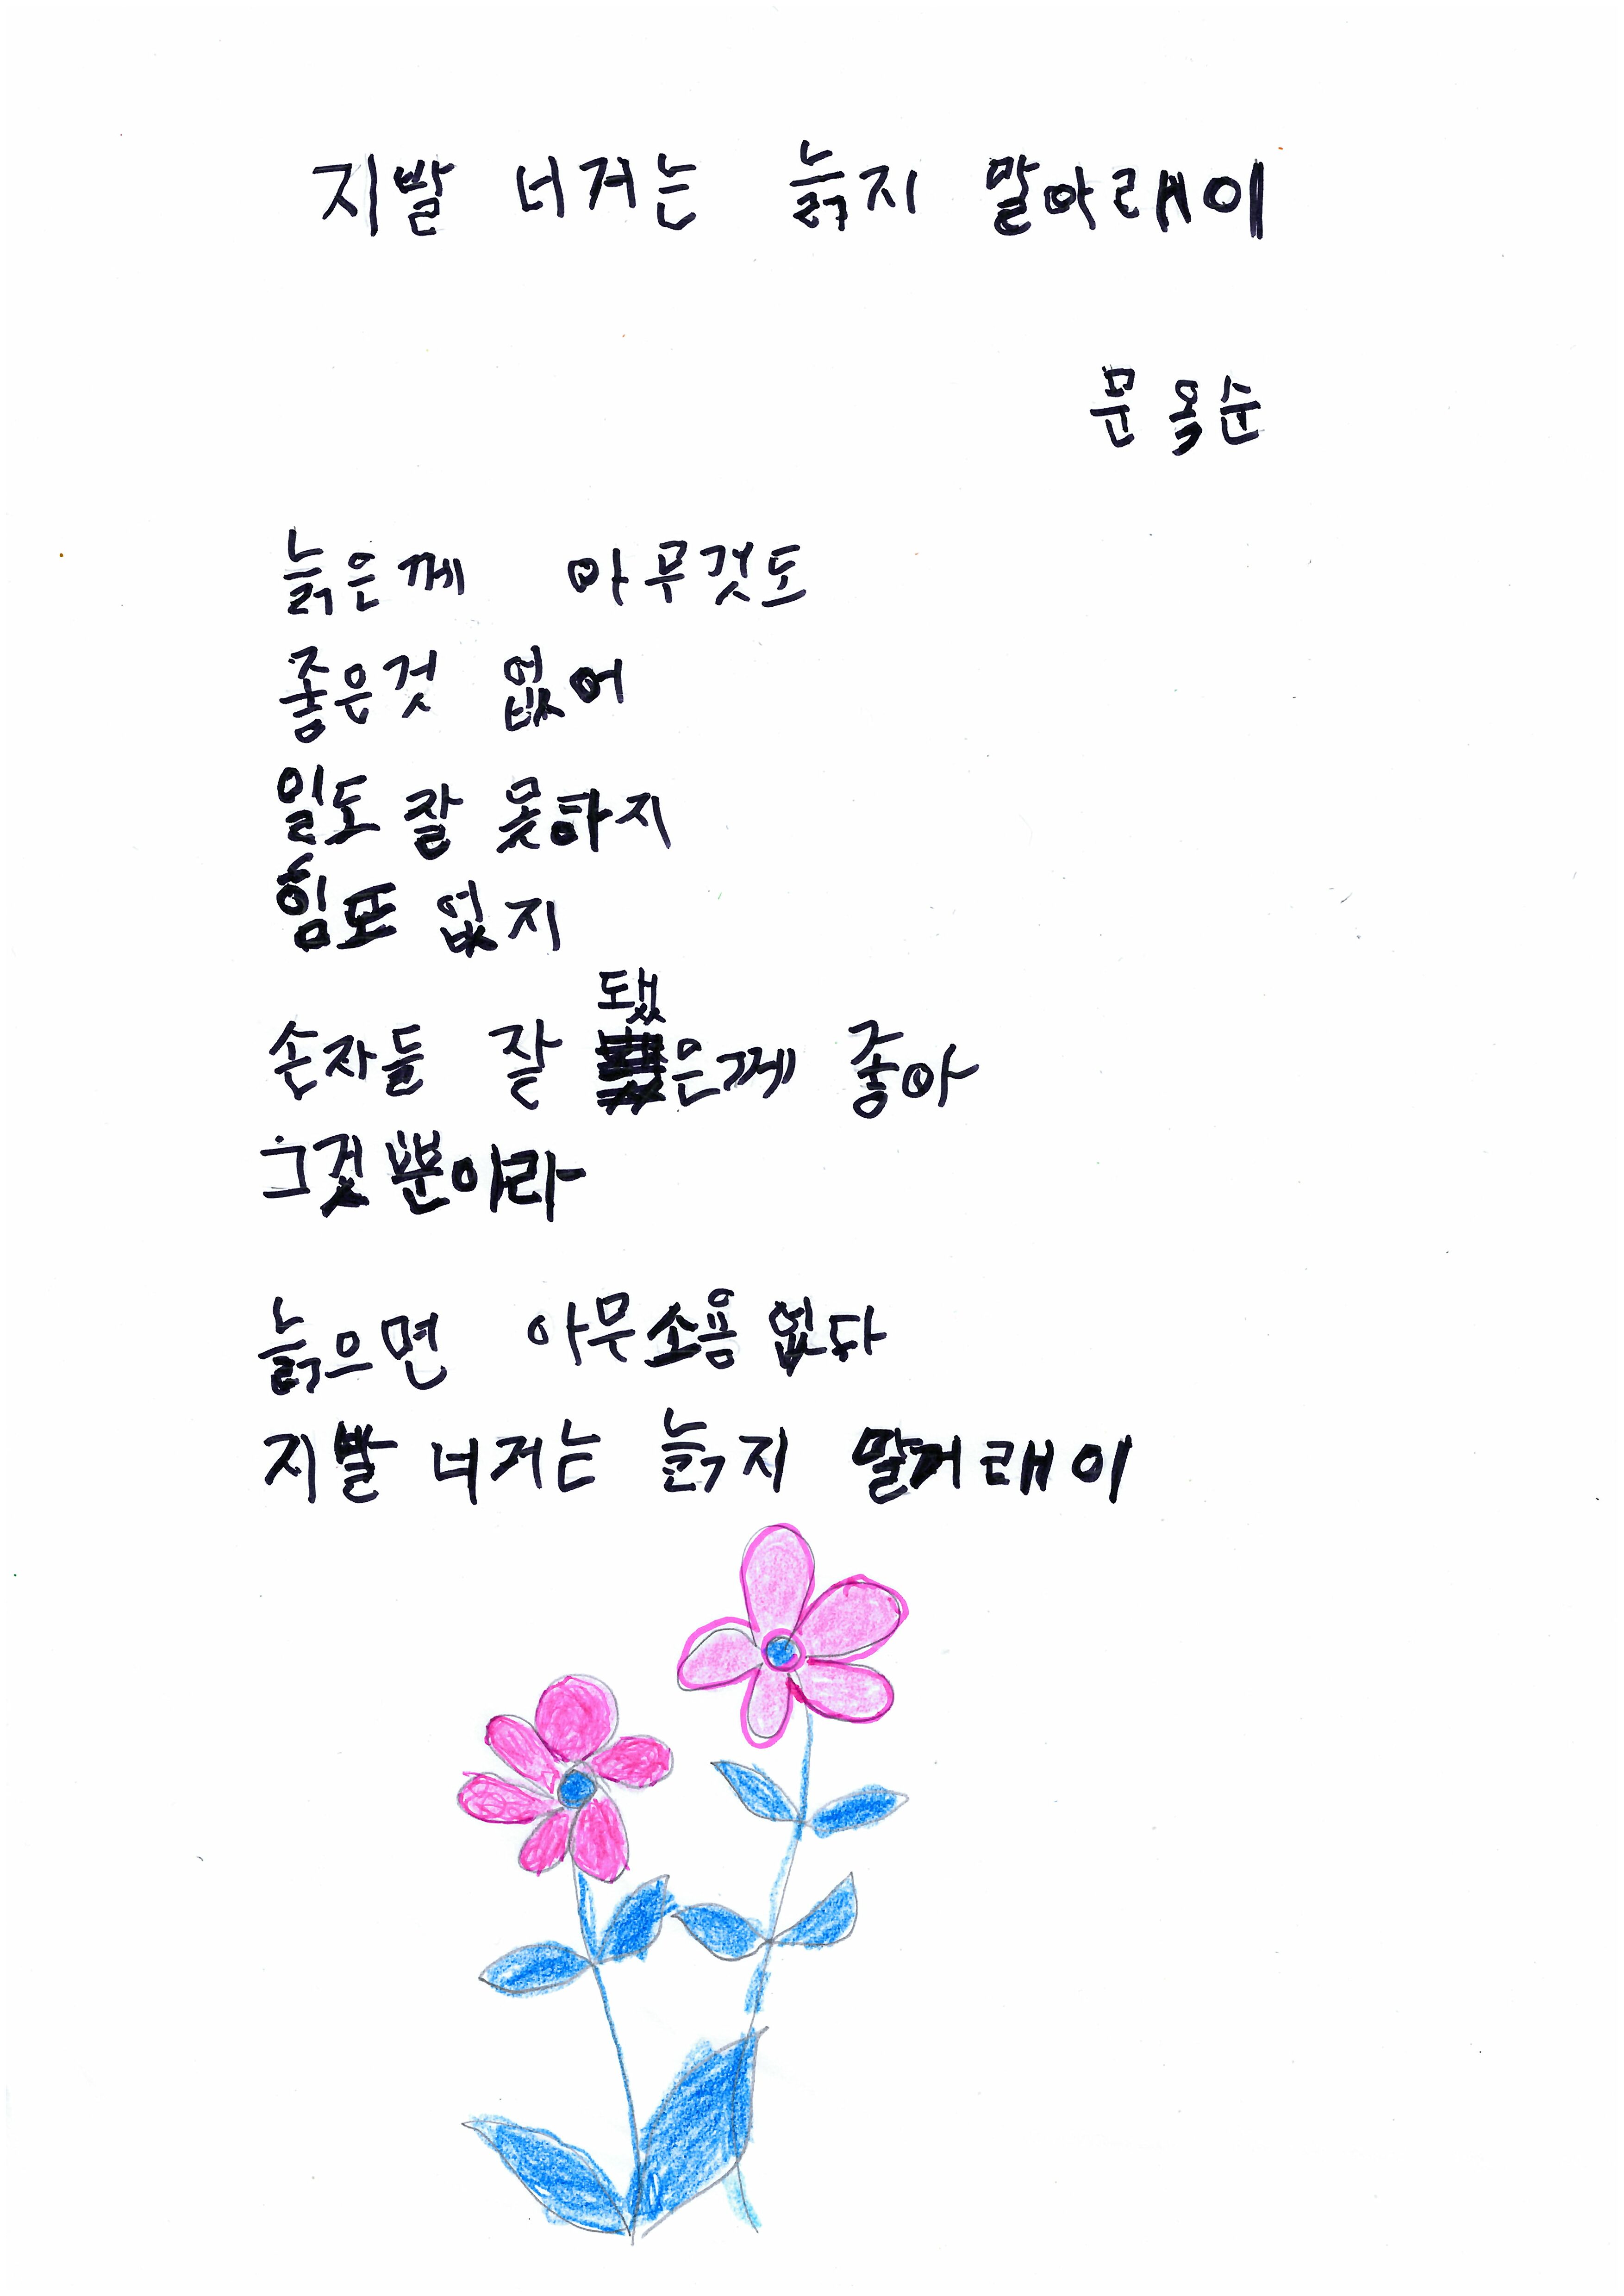 지발 너거는 늙지 말아래이
문옥순
늙은께 아무것도
좋은것 없어
일도 잘 못하지
힘도 없지
손자들 잘 됐은께 좋아
그것뿐이라
늙으면 아무소용없다
지발 너거는 늙지 말거래이